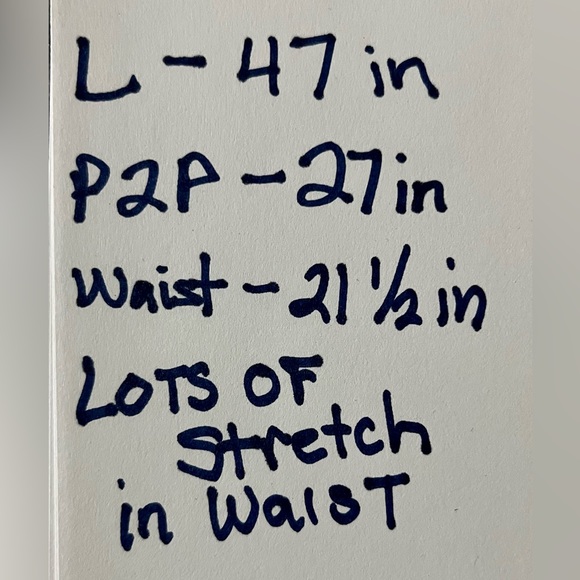 L - 47 in
P2P - 27 in
Waist - 21 1/2 in
LOTS OF
Stretch
in WaisT